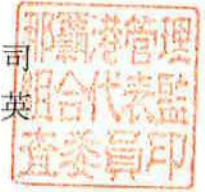 司
英
那覇港管理
組合代表監
査委員印